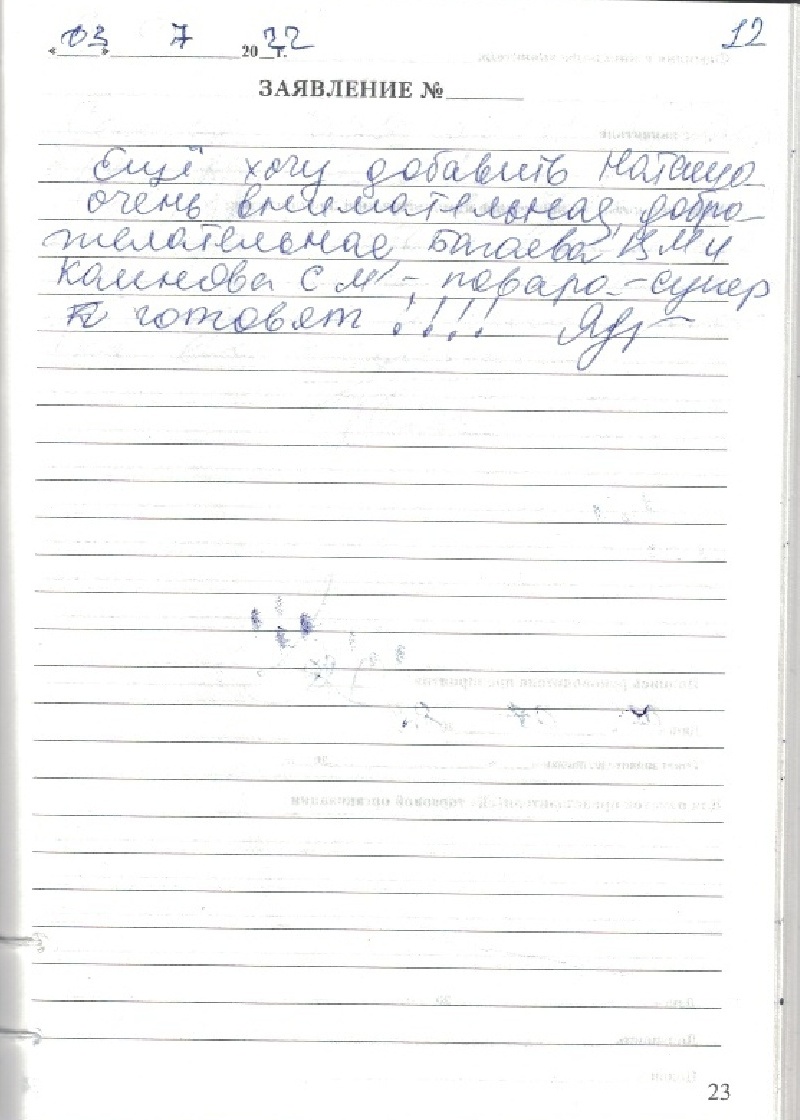 12
« 03 » 7 20 22 г.
ЗАЯВЛЕНИЕ №
Ещё хочу добавить Наташа
очень внимательная, добро-
желательная Багаева В М и
Каинова С М - повара - супер
готовят !!!!
23